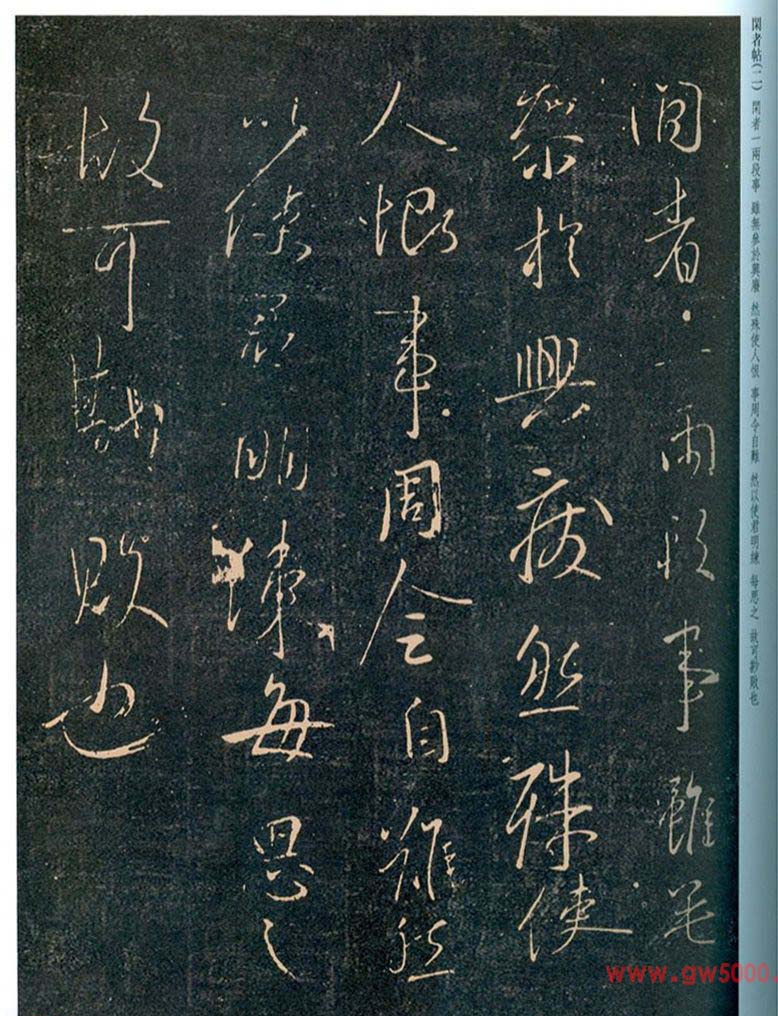 閑者帖(二) 閑者一兩段事 雖無參於興廢 然殊使人恨 事周令自難 然以使君明練 每思之 故可勘敗也
閒者一兩段事雖無
參於興廢然殊使
人恨事周令自難然
以使君明練每思之
故可勘敗也
www.gw5000.